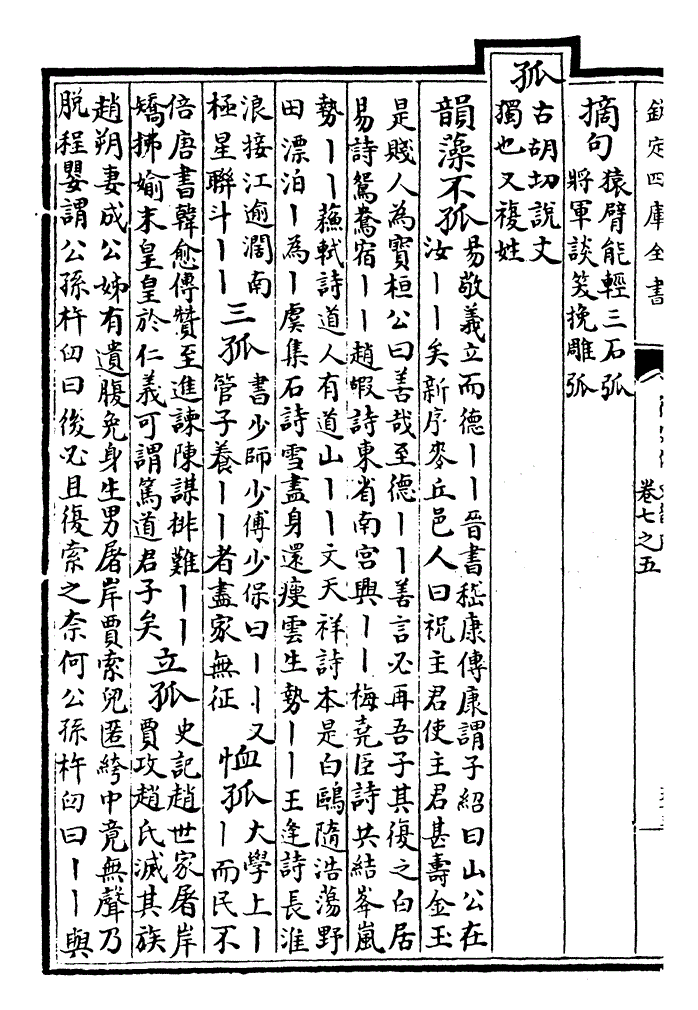 欽定四庫全書
卷七之五
摘句 猿臂能輕三石弧
將軍談笑挽雕弧
孤 古胡切說文
獨也又複姓
韻藻不孤 易敬義立而德〡〡晉書嵇康傳康謂子紹曰山公在
汝〡〡矣新序麥丘邑人曰祝主君使主君甚壽金玉
是賤人為寶桓公曰善哉至德〡〡善言必再吾子其復之白居
易詩鴛鴦宿〡〡趙嘏詩東省南宮興〡〡梅堯臣詩共結峯嵐
勢〡〡蘇軾詩道人有道山〡〡文天祥詩本是白鷗隨浩蕩野
田漂泊〡為〡虞集石詩雪盡身還瘦雲生勢〡〡王逢詩長淮
浪接江逾濶南
極星聯斗〡〡
三孤 書少師少傅少保曰〡〡又
管子養〡〡者盡家無征
恤孤 大學上〡
〡而民不
倍唐書韓愈傳贊至進諫陳謀排難〡〡
矯拂媮末皇皇於仁義可謂篤道君子矣
立孤 史記趙世家屠岸
賈攻趙氏滅其族
趙朔妻成公姊有遺腹免身生男屠岸賈索兒匿絝中竟無聲乃
脫程嬰謂公孫杵臼曰後必且復索之奈何公孫杵臼曰〡〡與